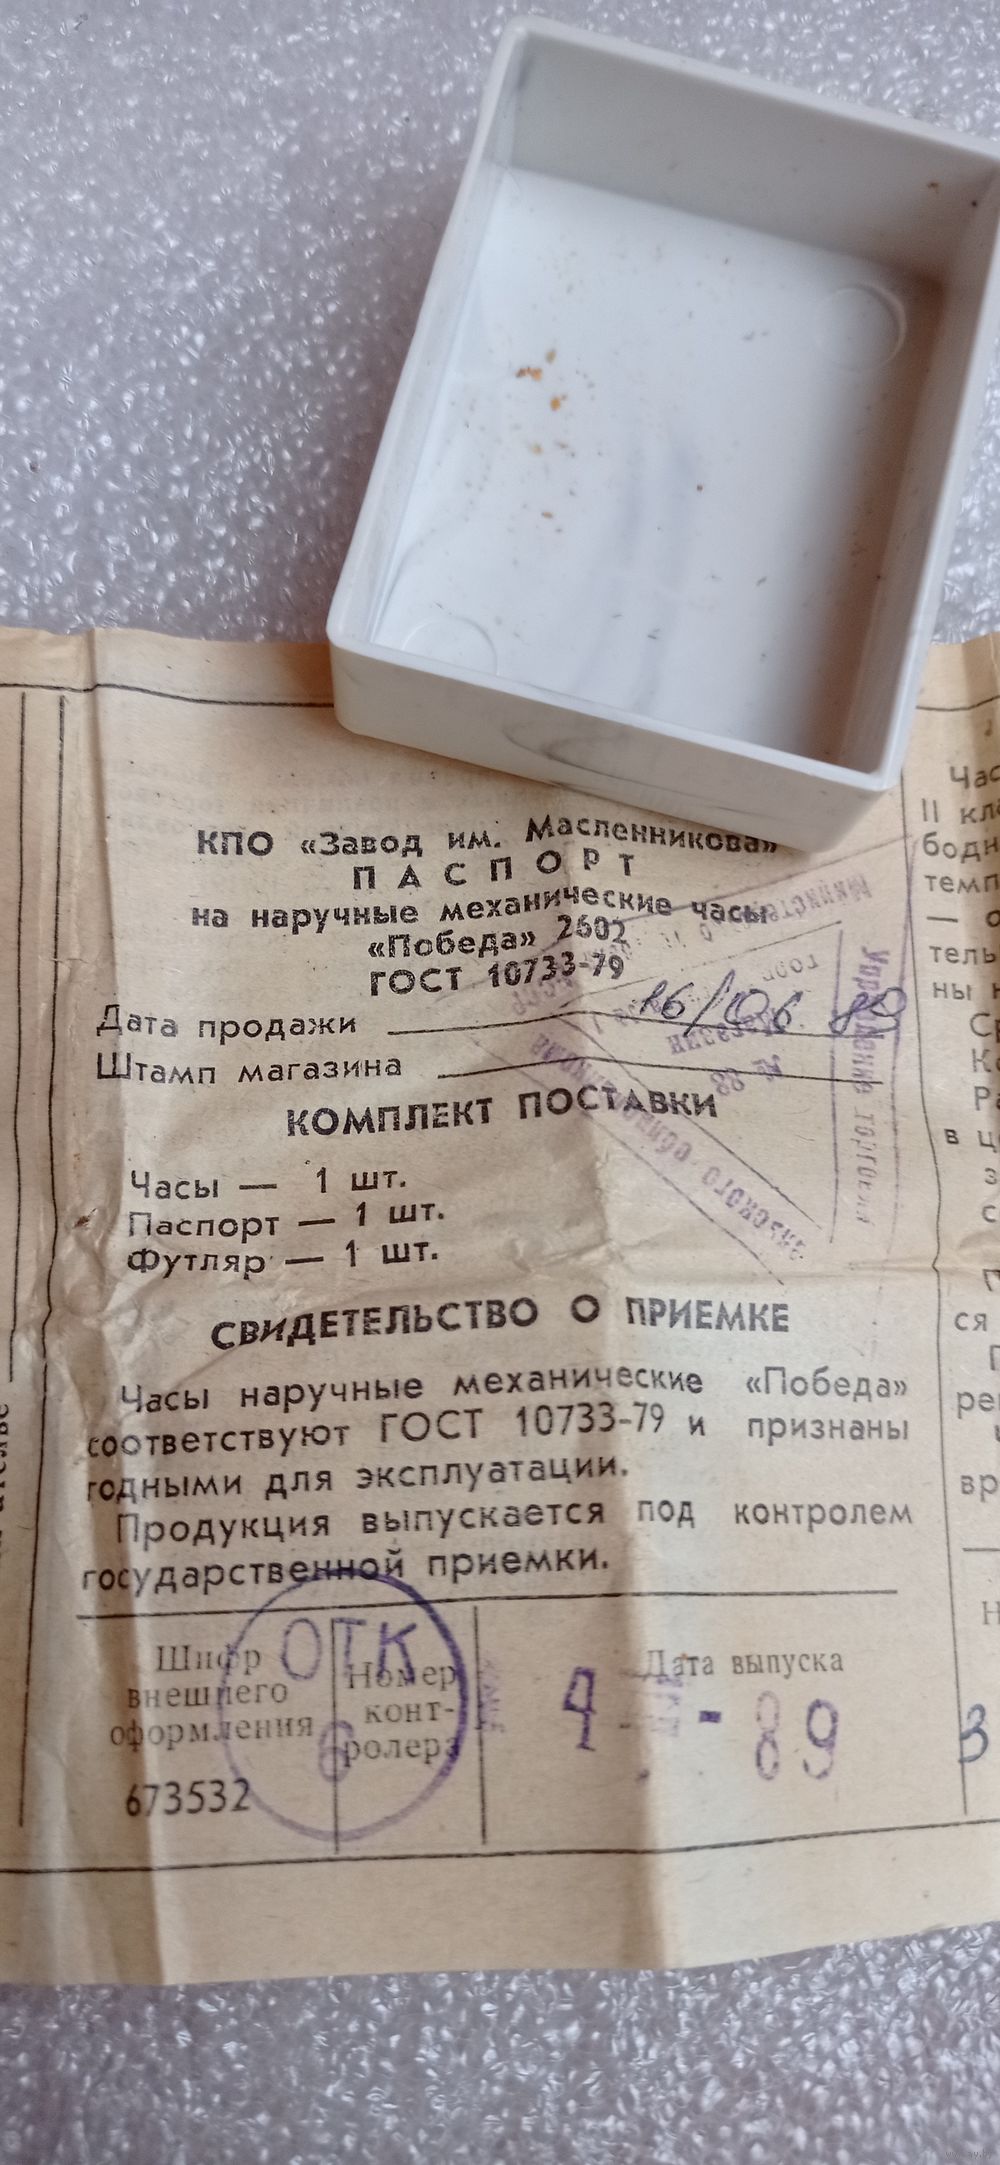 КПО «Завод им. Масленникова»
ПАСПОРТ
на наручные механические часы
«Победа» 2602
ГОСТ 10733-79
Дата продажи 16/06. 89
Штамп магазина
Управление торговли
КОМПЛЕКТ ПОСТАВКИ
Часы — 1 шт.
Паспорт — 1 шт.
Футляр — 1 шт.
СВИДЕТЕЛЬСТВО О ПРИЕМКЕ
Часы наручные механические «Победа»
соответствуют ГОСТ 10733-79 и признаны
годными для эксплуатации.
Продукция выпускается под контролем
государственной приемки.
Шифр
внешнего
оформления
673532
Номер
конт-
ролера
ОТК
6
Дата выпуска
4 - 89